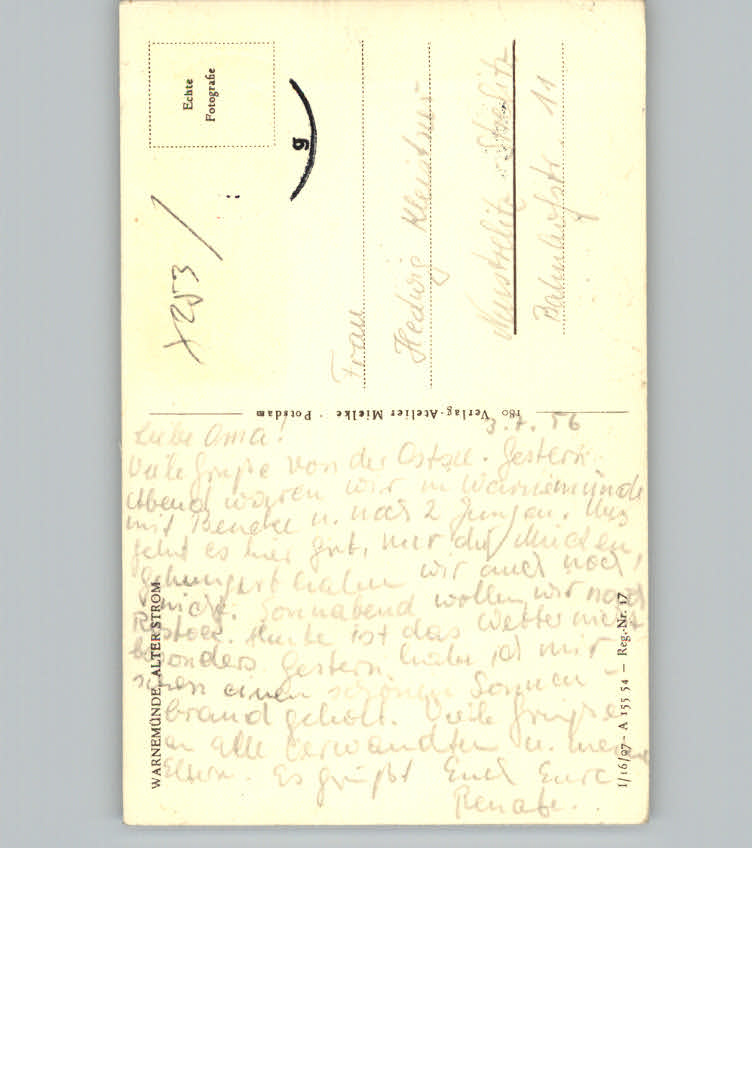 Echte
Fotografie
g
X253 /
Frau
Hedwig
Neustrelitz - Strelitz
Bahnhofstr. 11
180 Verlag-Atelier Mielke · Potsdam
WARNEMÜNDE, ALTER STROM
I/16/97 – A 155 54 – Reg.-Nr. 17
3.7.56
Liebe Oma!
Viele Grüße von der Ostsee. Gestern
Abend waren wir in Warnemünde
mit u. noch 2 Jungen. Uns
geht es hier gut, nur die Mücken,
gehungert haben wir auch noch
nicht. Sonnabend wollen wir nach
Rostock. Heute ist das Wetter nicht
besonders Gestern habe ich mir
schon einen schönen Sonnen-
brand geholt. Viele Grüße
an alle Verwandten u. meine
Eltern. Es grüßt Euch Eure
Renate.